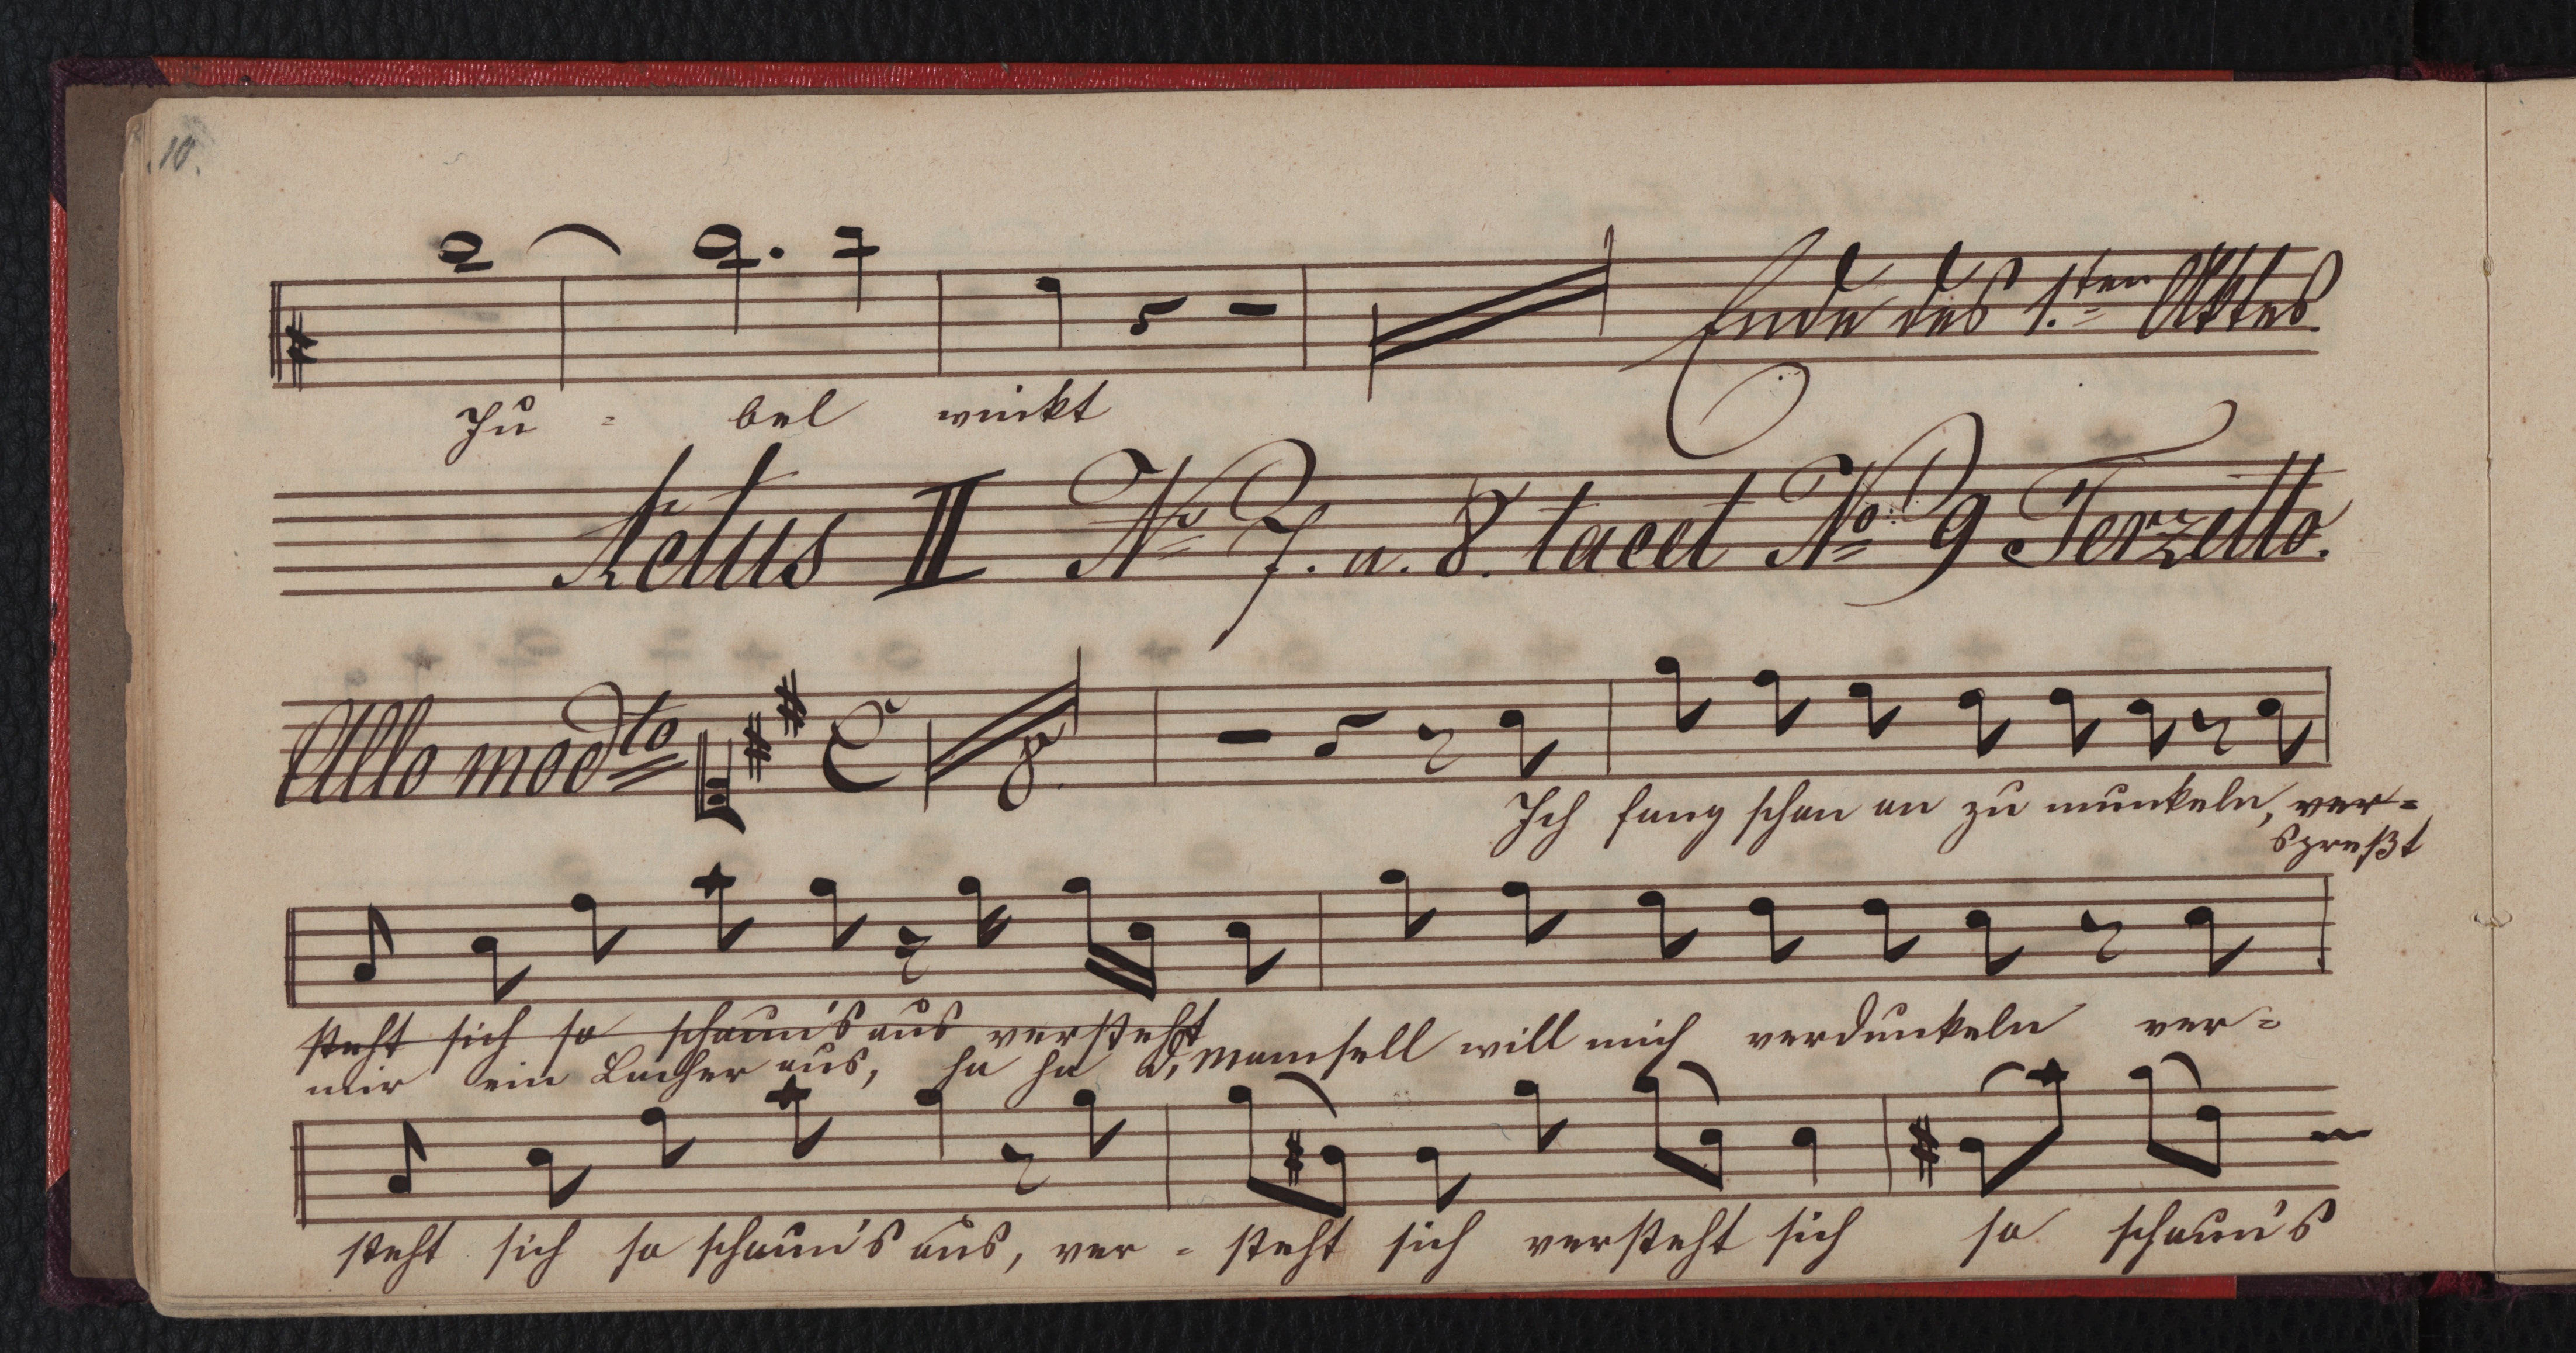 10.
Ende des 1.ten Aktes
Ju - bel winkt
Actus II No 7. u. 8. tacet No 9 Terzetto.
Allo modto 8.
Ich fang schon an zu munkeln, ver-
s'preßt
steht sich so schaun's aus versteht
mir ein Lacher aus, ha ha d, Mamsell will mich verdunkeln ver-
steht sich so schaun's aus, ver - steht sich versteht sich so schaun's